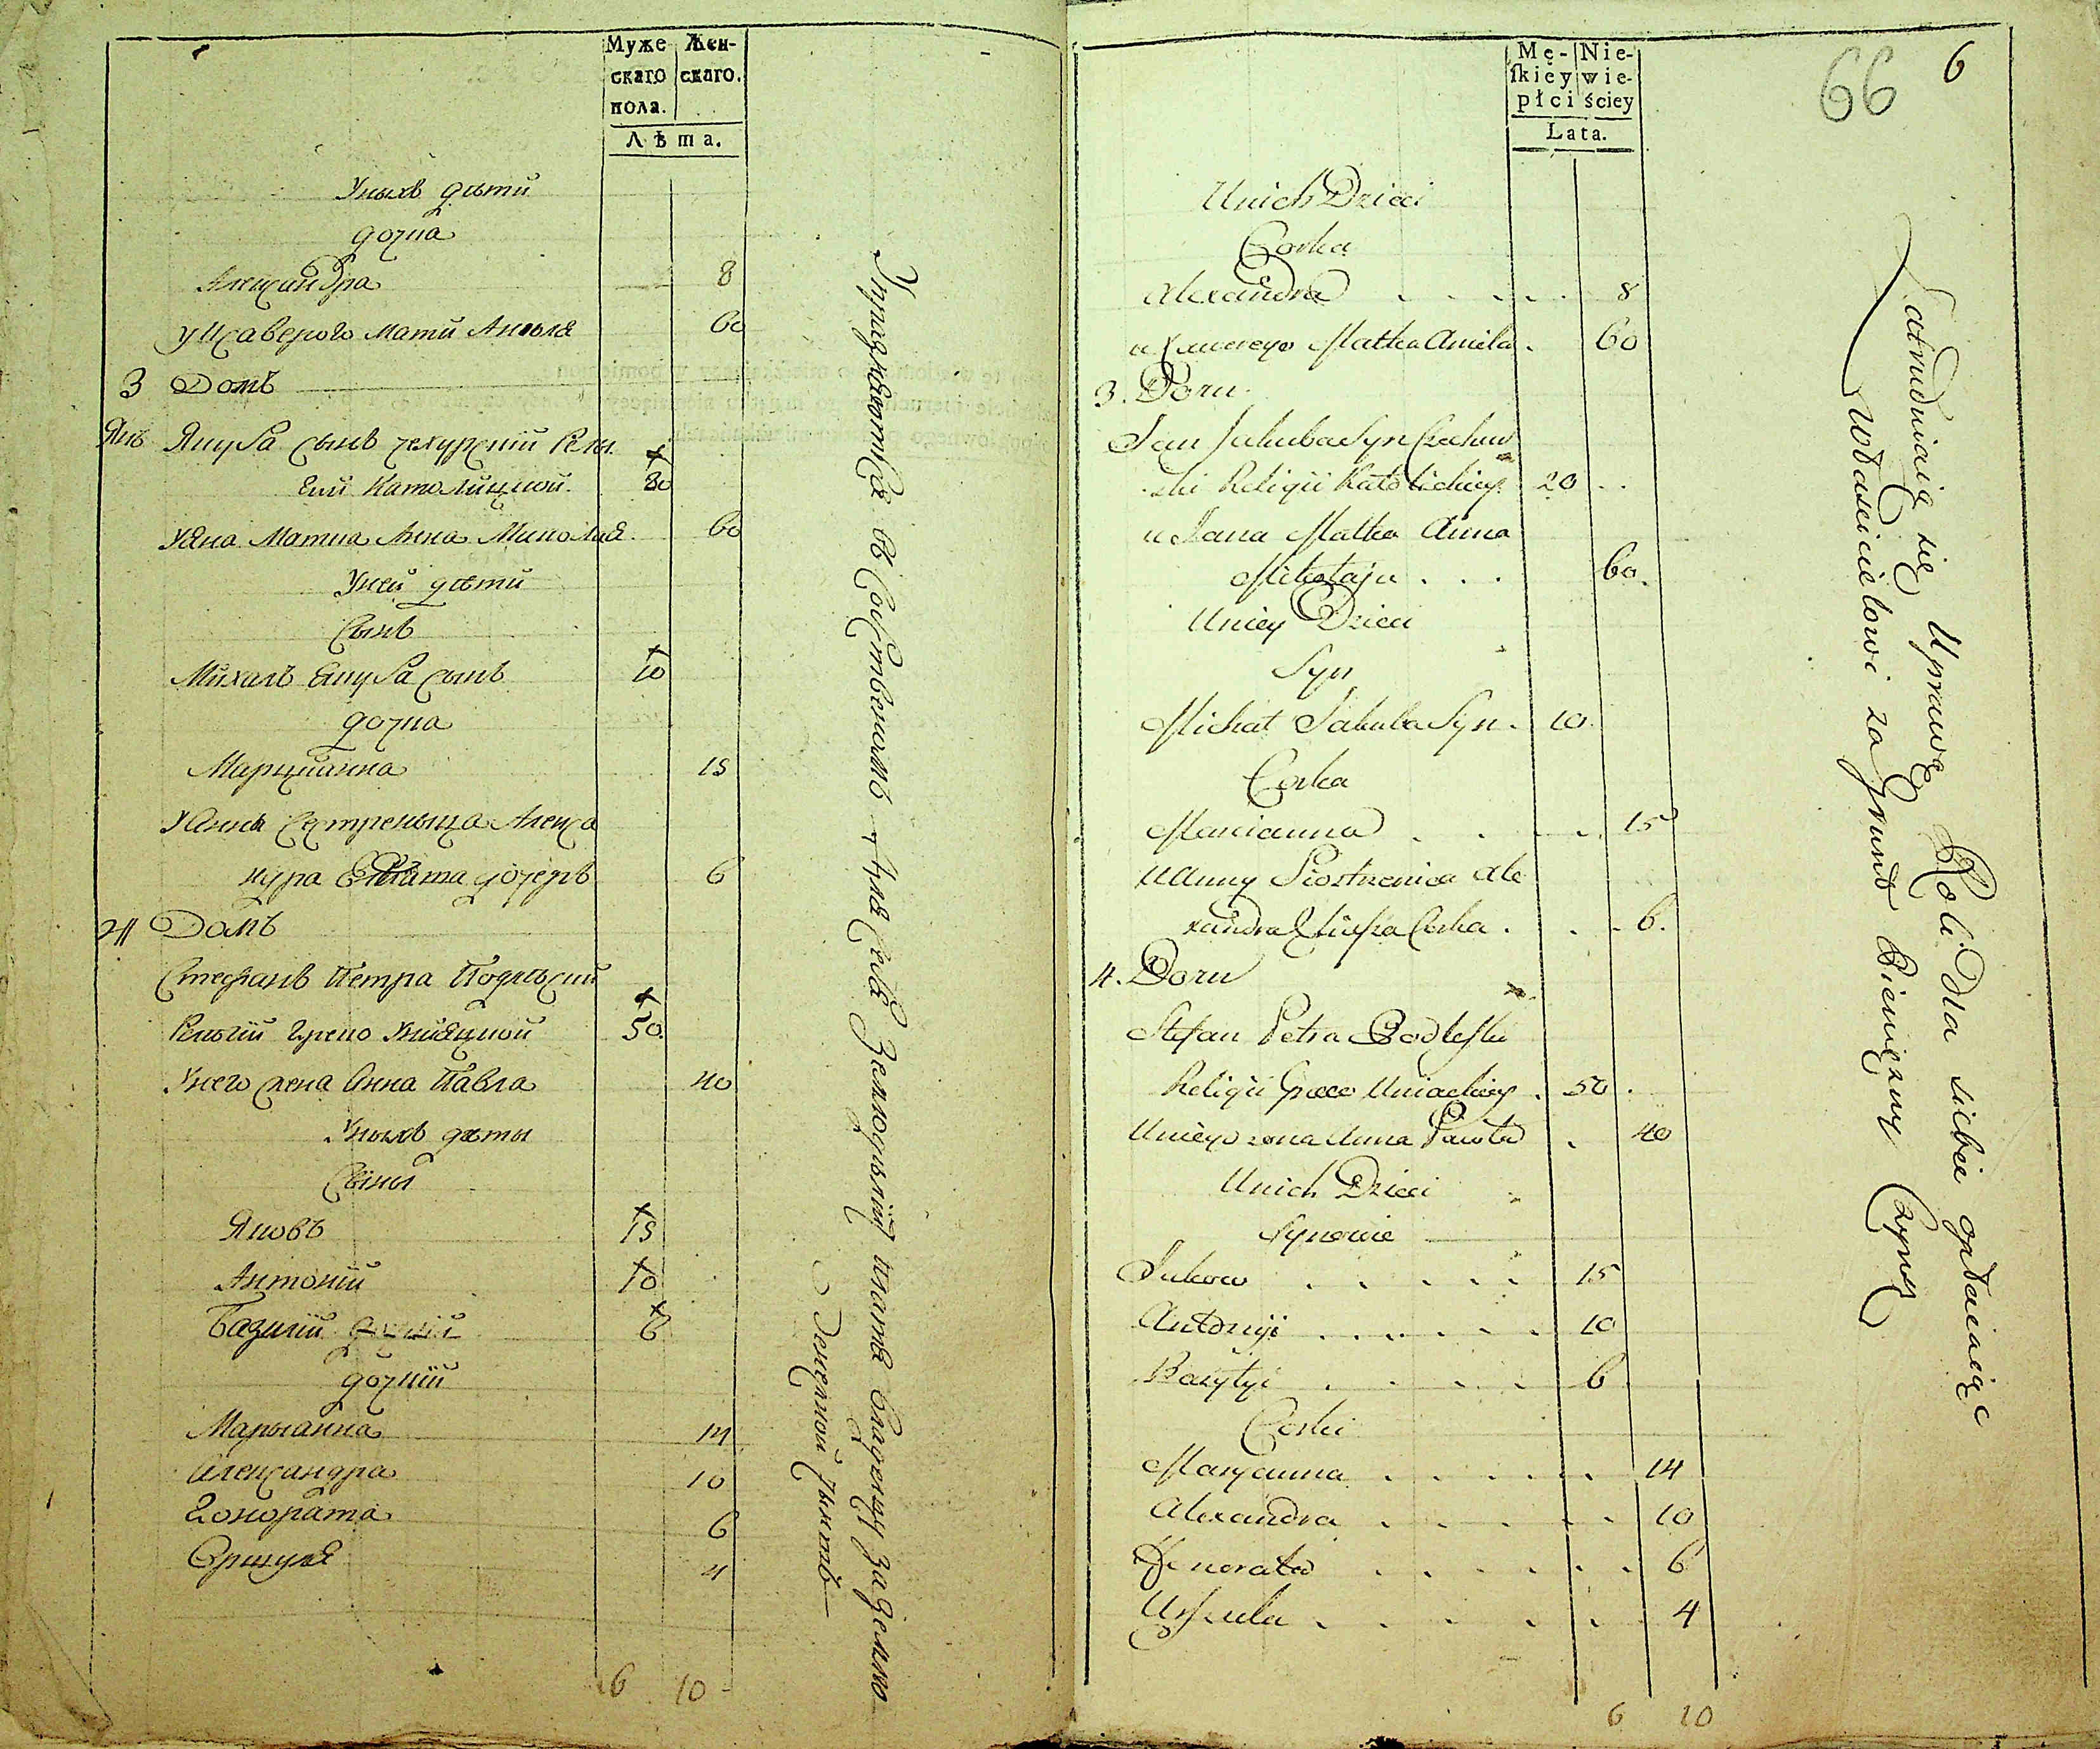 Муже Жен-
скаго скаго.
пола.
Лѣта.
Унихъ дѣти
дочка
Александра 8
у Ксаверого мати Анѣля 60
3 Домъ
Янъ Якуба сынъ Чехурскій Рели
Гіи Католицкой 20
У Яна Матка Анна Миколая 60
У ней дѣти
Сынъ
Михалъ Якуба сынъ 10
дочка
Марцианна 15
У Анны Сестреньица Алекса
ндра дочеръ 6
4 Домъ
Стефанъ Петра Подльский
Релігіи Греко Унияцкой 50
У него жена Анна Павла 40
Унихъ дѣти
Сыны
Яковъ 15
Антоній 10
Базилій 6
дочкіи
Марыанна 14
Александра 10
Гонората 6
Оршуля 4
6 10
Упражняются въ для себя Земледѣлій платя владельцу за Землю
Денежной Чыншъ
66 6
Mę- Nie-
skiey wie-
płci ściey
Lata.
Unich Dzieci
Corka
Alexandra 8
u Xawerego Matka Aniela 60
3. Dom
Jan Jakuba Syn Czechur
ski Religii Katolickiey 20
u Jana Matka Anna
Mikołaja 60.
Uniey Dzieci
Syn
Michał Jakuba Syn 10
Corka
Marcianna 15
U Anny Siostrzenica Ale
xandra Corka 6.
4. Dom
Stefan Petra Podleski
Religii Greco Uniackiey 50
Uniego zona Anna Pawła 40
Unich Dzieci
Synowie
Jakow 15
Antonyi 10
Bazylyi 6
Corki
Maryanna 14
Alexandra 10
Honorata 6
Urszula 4
6 10
Zatrudniaią się Uprawą Roli dla siebie opłaiaiąc
Właścicielowi za Grunt Pieniężny Czynsz